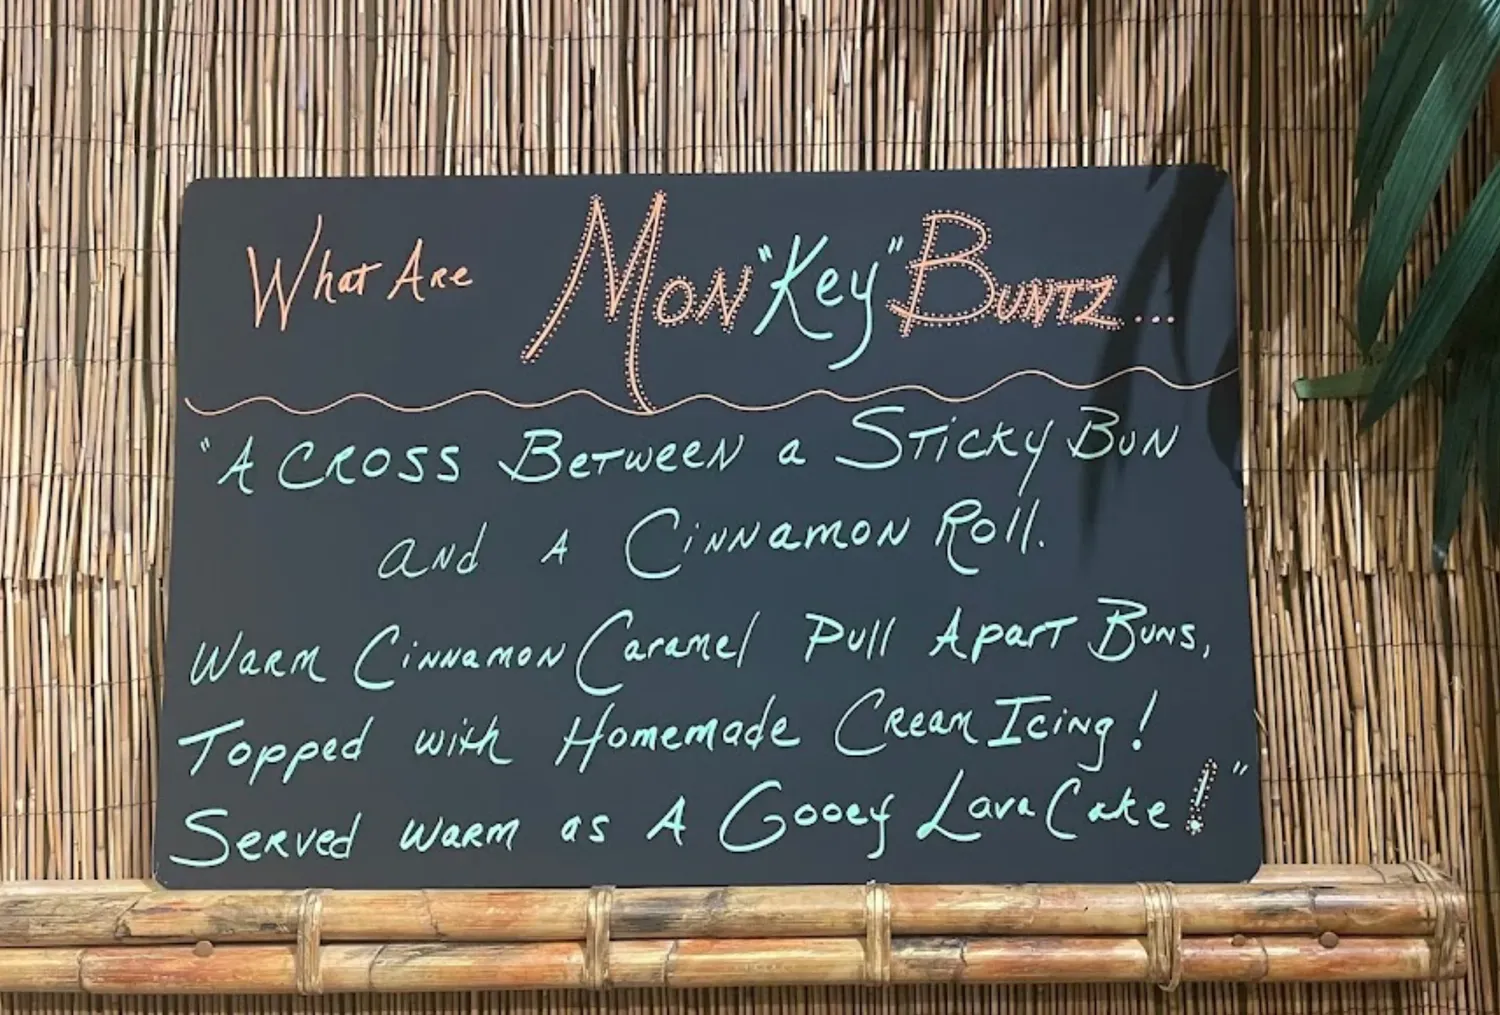 What Are Mon"Key"Buntz...
"A Cross Between a Sticky Bun
and A Cinnamon Roll.
Warm Cinnamon Caramel Pull Apart Buns,
Topped with Homemade Cream Icing!
Served warm as A Gooey Lava Cake!"